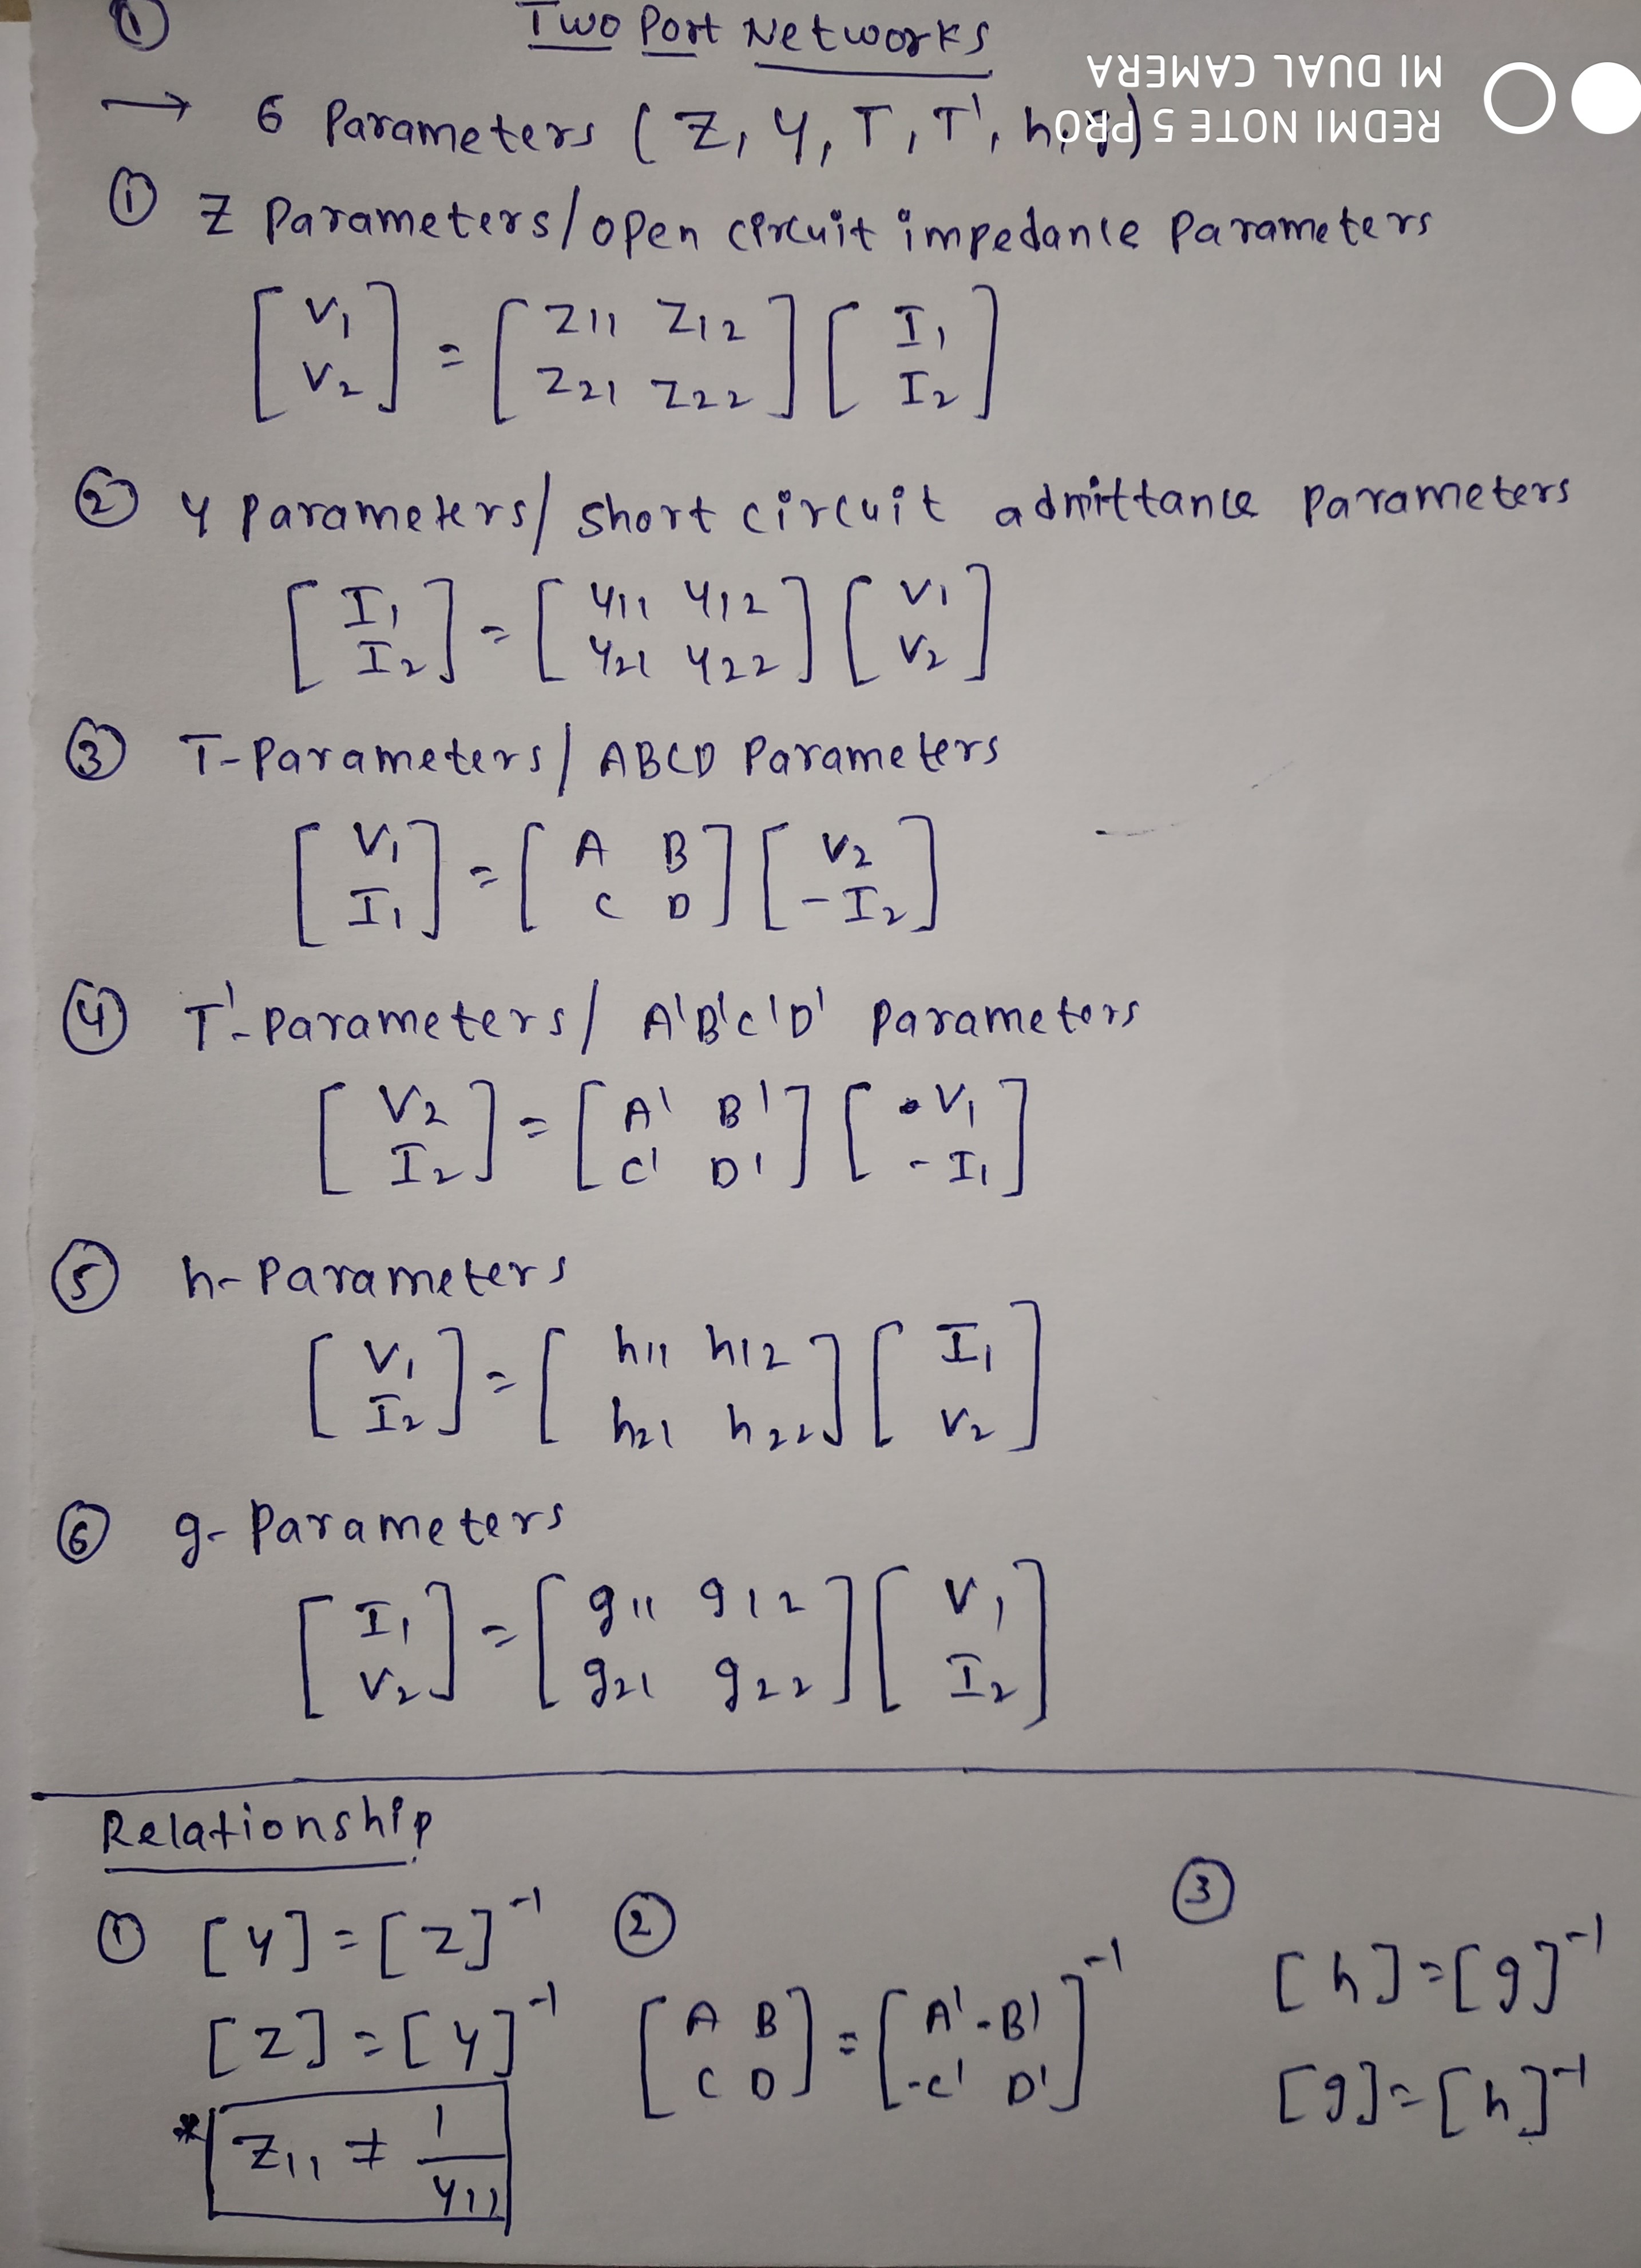 ①
Two Port Networks
MI DUAL CAMERA
REDMI NOTE 5 PRO
→ 6 Parameters ( Z, Y, T, T', h, )
① Z Parameters/open circuit impedance Parameters
[V1 V2] = [Z11 Z12 Z21 Z22] [I1 I2]
② Y Parameters/ short circuit admittance Parameters
[I1 I2] = [Y11 Y12 Y21 Y22] [V1 V2]
③ T-Parameters/ ABCD Parameters
[V1 I1] = [A B C D] [V2 -I2]
④ T'-Parameters/ A'B'C'D' Parameters
[V2 I2] = [A' B' C' D'] [V1 -I1]
⑤ h-Parameters
[V1 I2] = [h11 h12 h21 h22] [I1 V2]
⑥ g-Parameters
[I1 V2] = [g11 g12 g21 g22] [V1 I2]
Relationship
① [Y]=[Z]⁻¹
[Z]=[Y]⁻¹
* Z11 ≠ 1/Y11
②
[A B C D] = [A' -B' -C' D']⁻¹
③
[h]=[g]⁻¹
[g]=[h]⁻¹